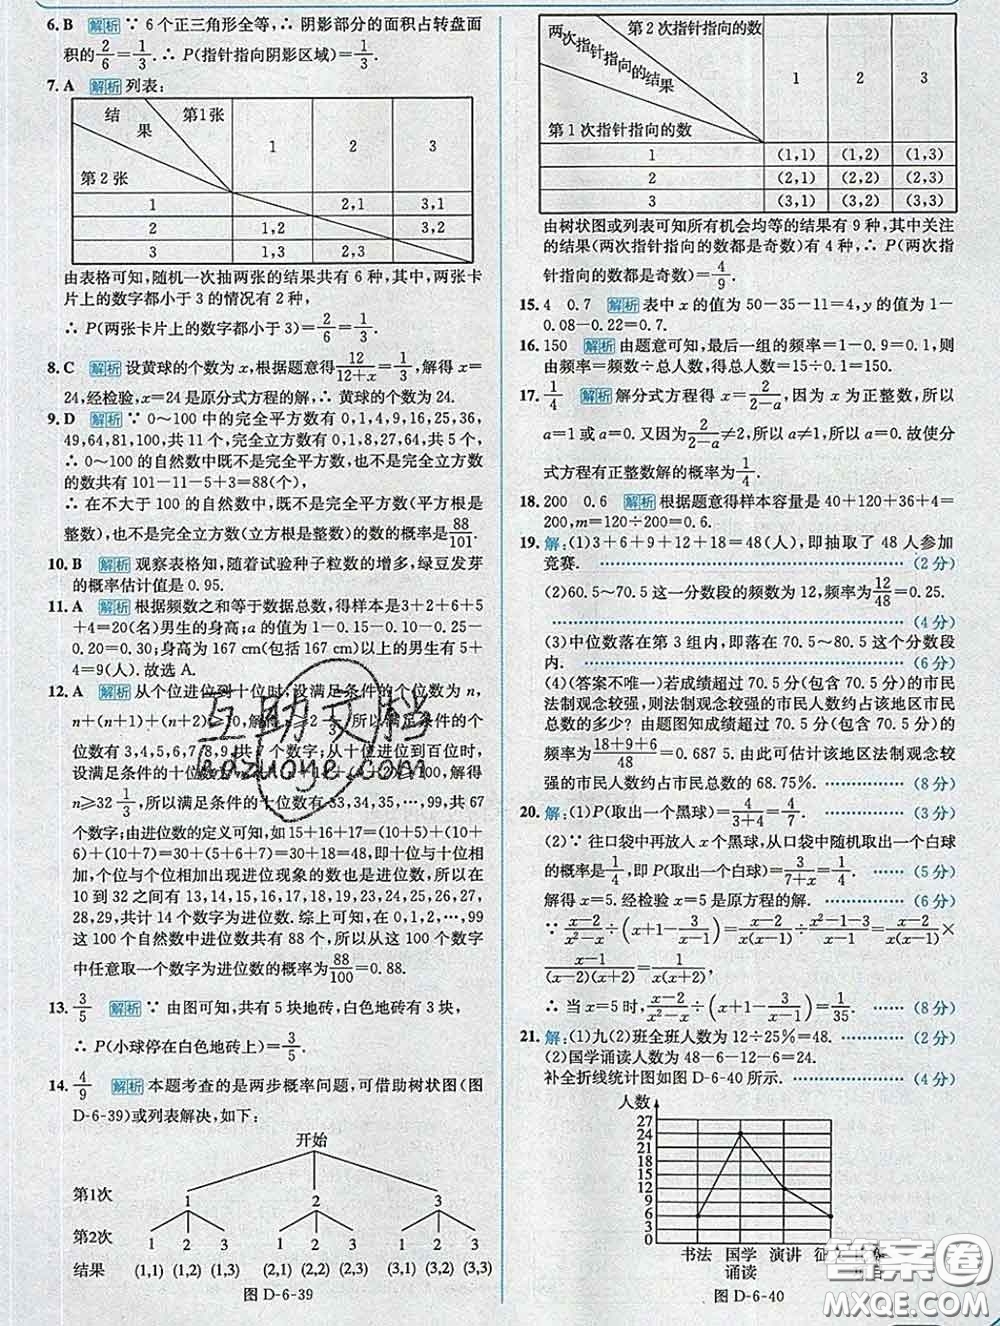 6. B 解析 ∵ 6个正三角形全等,∴ 阴影部分的面积占转盘面
积的2/6=1/3.∴ P(指针指向阴影区域)=1/3.
7. A 解析 列表:
结果 第1张 1 2 3
第2张
1 2,1 3,1
2 1,2 3,2
3 1,3 2,3
由表格可知,随机一次抽两张的结果共有6种,其中,两张卡
片上的数字都小于3的情况有2种,
∴ P(两张卡片上的数字都小于3)=2/6=1/3.
8. C 解析 设黄球的个数为x,根据题意得12/(12+x)=1/3,解得x=
24,经检验,x=24是原分式方程的解,∴ 黄球的个数为24.
9. D 解析 ∵ 0~100中的完全平方数有0,1,4,9,16,25,36,
49,64,81,100,共11个,完全立方数有0,1,8,27,64,共5个,
∴ 0~100的自然数中既不是完全平方数,也不是完全立方数
的数共有101-11-5+3=88(个),
∴ 在不大于100的自然数中,既不是完全平方数(平方根是
整数),也不是完全立方数(立方根是整数)的数的概率是88/101.
10. B 解析 观察表格知,随着试验种子粒数的增多,绿豆发芽
的概率估计值是0.95.
11. A 解析 根据频数之和等于数据总数,得样本是3+2+6+5
+4=20(名)男生的身高;a的值为1-0.15-0.10-0.25-
0.20=0.30;身高为167 cm(包括167 cm)以上的男生有5+
4=9(人).故选A.
12. A 解析 从个位进位到十位时,设满足条件的个位数为n,
n+(n+1)+(n+2)≥10,解得n≥2 1/3,所以满足条件的个
位数有3,4,5,6,7,8,9,共7个数字;从十位进位到百位时,
设满足条件的十位数为n,n+(n+1)+(n+2)≥100,解得
n≥32 1/3,所以满足条件的十位数有33,34,35,…,99,共67
个数字;由进位数的定义可知,如15+16+17=(10+5)+(10+
6)+(10+7)=30+(5+6+7)=30+18=48,即十位与十位相
加,个位与个位相加出现进位现象的数也是进位数,所以在
10到32之间有13,14,15,16,17,18,19,23,24,25,26,27,
28,29,共计14个数字为进位数.综上可知,在0,1,2,…,99
这100个自然数中进位数共有88个,所以从这100个数字
中任意取一个数字为进位数的概率为88/100=0.88.
13. 3/5 解析 ∵ 由图可知,共有5块地砖,白色地砖有3块,
∴ P(小球停在白色地砖上)=3/5.
14. 4/9 解析 本题考查的是两步概率问题,可借助树状图(图
D-6-39)或列表解决,如下:
开始
第1次 1 2 3
第2次 1 2 3 1 2 3 1 2 3
结果 (1,1) (1,2) (1,3) (2,1) (2,2) (2,3) (3,1) (3,2) (3,3)
图 D-6-39
两次指针指向的结果 第2次指针指向的数 1 2 3
第1次指针指向的数
1 (1,1) (1,2) (1,3)
2 (2,1) (2,2) (2,3)
3 (3,1) (3,2) (3,3)
由树状图或列表可知所有机会均等的结果有9种,其中关注
的结果(两次指针指向的数都是奇数)有4种,∴ P(两次指
针指向的数都是奇数)=4/9.
15. 4 0.7 解析 表中x的值为50-35-11=4,y的值为1-
0.08-0.22=0.7.
16. 150 解析 由题意可知,最后一组的频率=1-0.9=0.1,则
由频率=频数÷总人数,得总人数=15÷0.1=150.
17. 1/4 解析 解分式方程得x=2/(2-a),因为x为正整数,所以
a=1或a=0.又因为2/(2-a)≠2,所以a≠1,所以a=0.故使分
式方程有正整数解的概率为1/4.
18. 200 0.6 解析 根据题意得样本容量是40+120+36+4=
200,m=120÷200=0.6.
19. 解:(1)3+6+9+12+18=48(人),即抽取了48人参加
竞赛. (2分)
(2)60.5~70.5这一分数段的频数为12,频率为12/48=0.25.
(4分)
(3)中位数落在第3组内,即落在70.5~80.5这个分数段
内. (6分)
(4)(答案不唯一)若成绩超过70.5分(包含70.5分)的市民
法制观念较强,则法制观念较强的市民人数约占该地区市民
总数的多少?由题图知成绩超过70.5分(包含70.5分)的
频率为(18+9+6)/48=0.687 5.由此可估计该地区法制观念较
强的市民人数约占市民总数的68.75%. (8分)
20. 解:(1)P(取出一个黑球)=4/(3+4)=4/7. (3分)
(2)∵ 往口袋中再放入x个黑球,从口袋中随机取出一个白球
的概率是1/4,即P(取出一个白球)=3/(7+x)=1/4. (5分)
解得x=5.经检验x=5是原方程的解. (6分)
∵ (x-2)/(x²-x)÷(x+1-3/(x-1))=(x-2)/(x(x-1))÷(x²-1-3)/(x-1)=(x-2)/(x(x-1))×
(x-1)/((x-2)(x+2))=1/(x(x+2)),
∴ 当x=5时,(x-2)/(x²-x)÷(x+1-3/(x-1))=1/35. (8分)
21. 解:(1)九(2)班全班人数为12÷25%=48. (2分)
(2)国学诵读人数为48-6-12-6=24.
补全折线统计图如图D-6-40所示. (4分)
人数
27
24
21
18
15
12
9
6
3
0
书法 国学诵读 演讲 征
图 D-6-40
互助文档
hdzuoye.com
答案圈
MXQE.COM